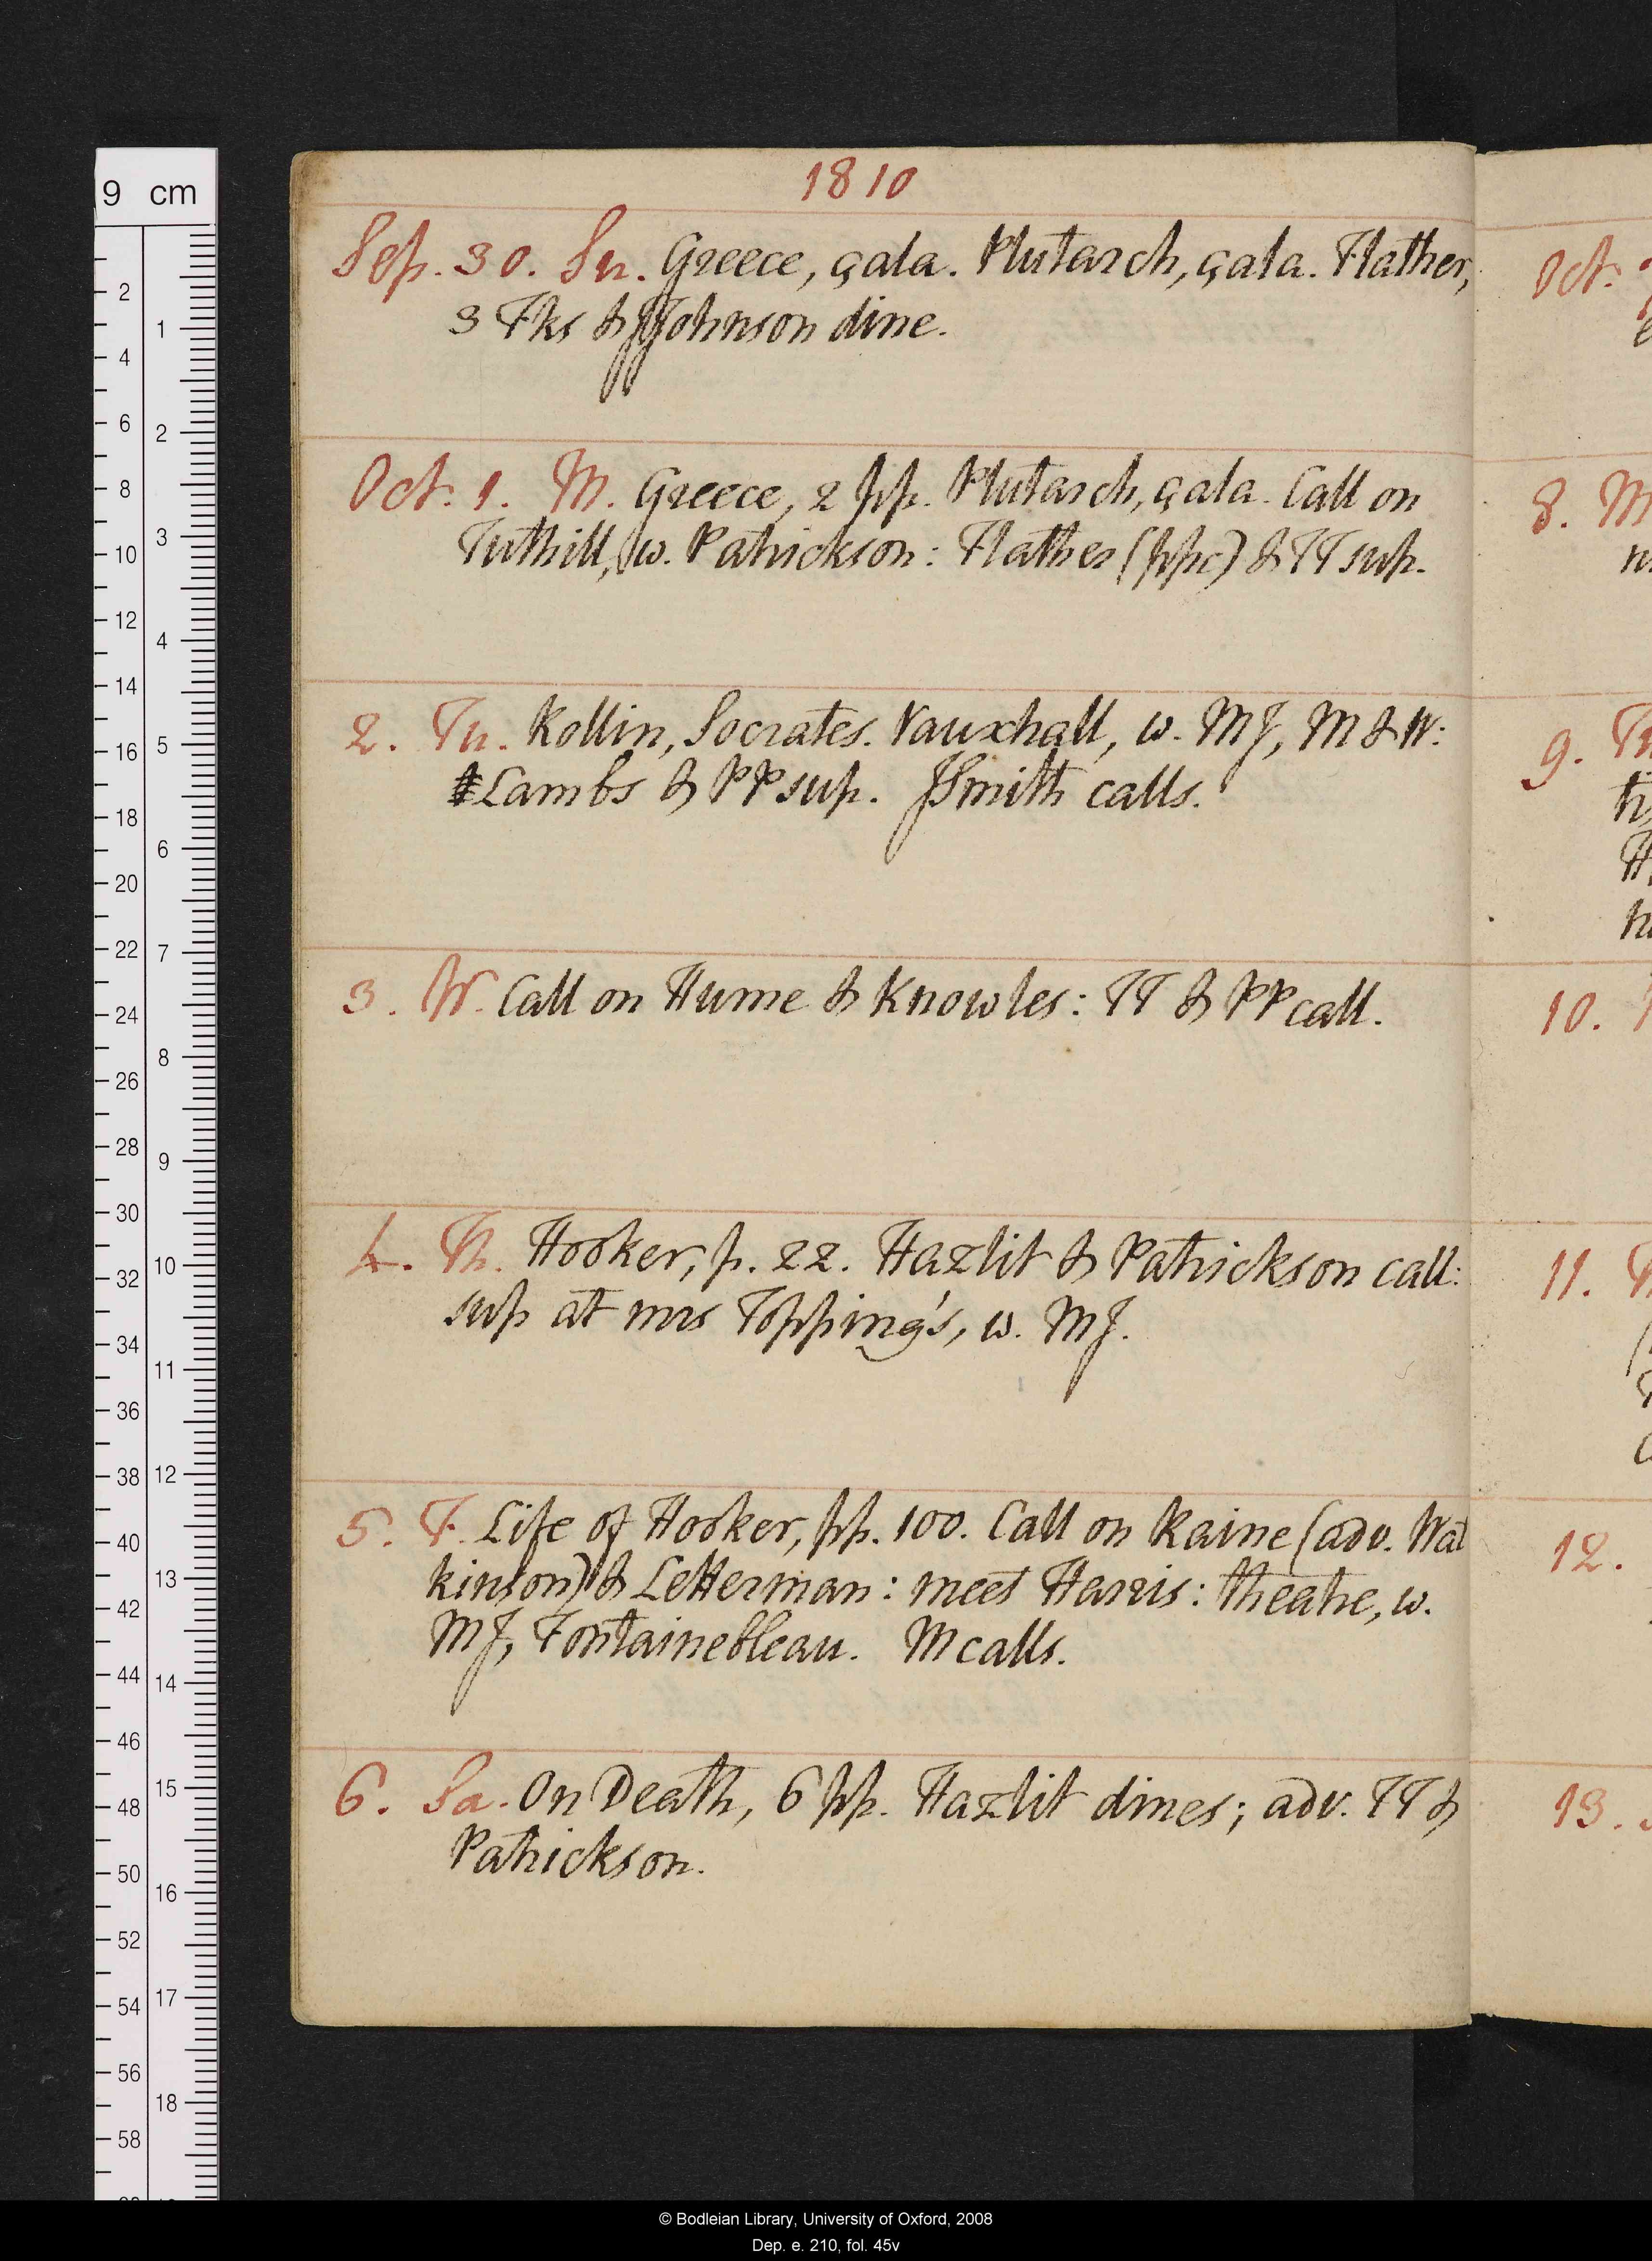 1810
Sep. 30. Su. Greece, çala. Plutarch, çala. Flather,
3 Fks & JJohnson dine.
Oct. 1. M. Greece, 2 pp. Plutarch, çala. Call on
Tuthill, w. Patrickson: Flather (ppc) & TT sup.
2. Tu. Rollin, Socrates. Vauxhall, w. MJ, M & W:
Lambs & PP sup. JSmith calls.
3. W. Call on Hume & Knowles: TT & PP call.
4. Th. Hooker, p. 22. Hazlit & Patrickson call:
sup at mrs Topping's, w. MJ.
5. F. Life of Hooker, pp. 100. Call on Raine (adv. Wat
kinson) & Letterman: meet Harris: theatre, w.
MJ, Fontainebleau. M calls.
6. Sa. On Death, 6 pp. Hazlit dines; adv. TT &
Patrickson.
Oct.
8. M
9. Tu
10.
11.
12.
13.
9 cm
2
4
6
8
10
12
14
16
18
20
22
24
26
28
30
32
34
36
38
40
42
44
46
48
50
52
54
56
58
1
2
3
4
5
6
7
8
9
10
11
12
13
14
15
16
17
18
© Bodleian Library, University of Oxford, 2008
Dep. e. 210, fol. 45v